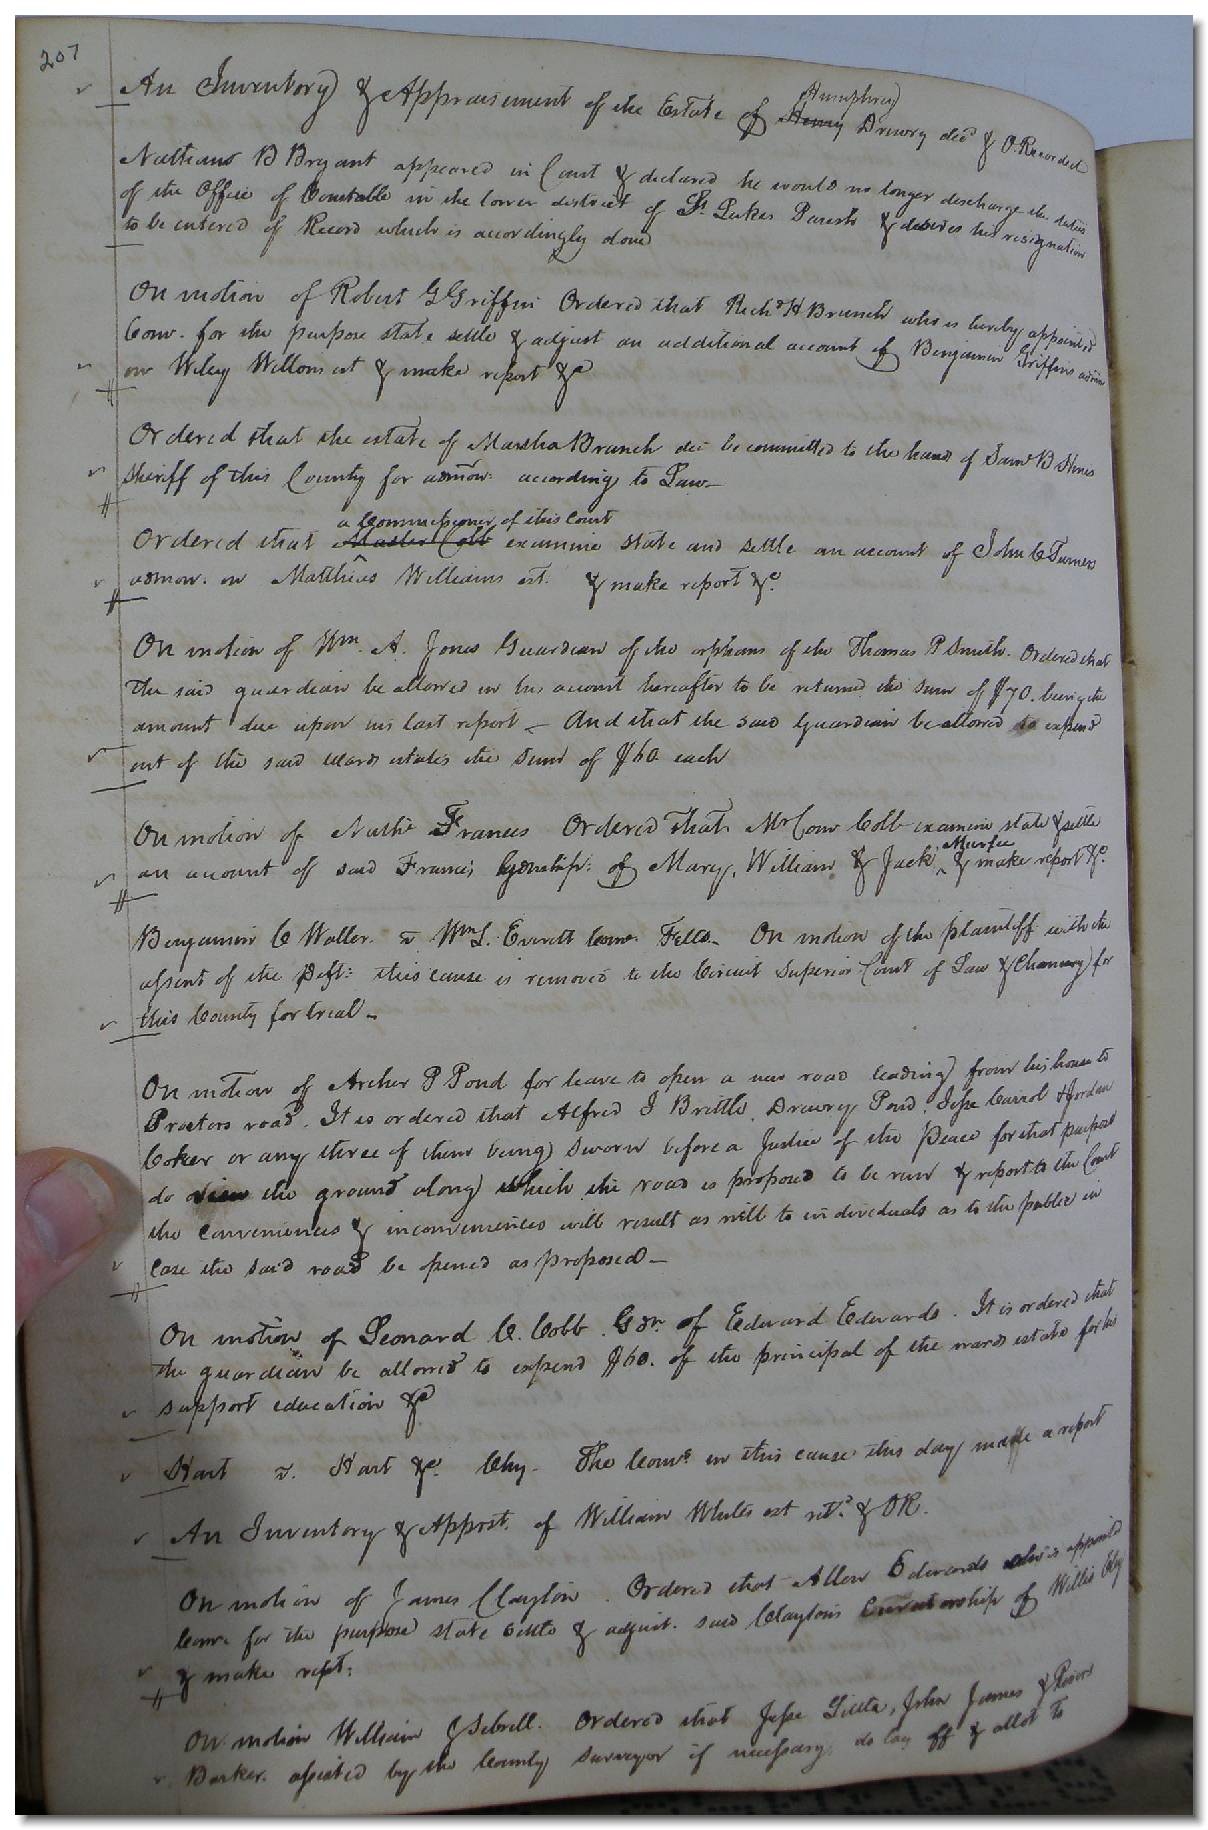 207
An Inventory & Appraisement of the Estate of Henry Humphrey Drewry decd & O. Recorded
Nathans B Bryant appeared in Court & declared he would no longer descharge the duties
of the Office of Constable in the lower district of St. Lukes Parish & desires his resignation
to be entered of Record which is accordingly done
On motion of Robert G Griffin Ordered that Richd H Branch who is hereby appointed
Comr. for the purpose state settle & adjust an additional account of Benjamin Griffins admn
on Wiley Willons est & make report &c
Ordered that the estate of Marsha Branch dec be committed to the hands of Saml B Hines
Sheriff of this County for admon. according to Law
a Commissioner of this Court
Ordered that Master Cobb examine state and settle an account of John C Turners
admon. on Matthias Williams est. & make report &c.
On motion of Wm. A. Jones Guardian of the orphans of the Thomas P Smith. Ordered that
the said guardian be allowed in his account hereafter to be returned the sum of $70. being the
amount due upon his last report – And that the said Guardian be allowed to expend
out of the said wards estates the sum of $60 each
On motion of Nathl Francis Ordered that Mr Comr Cobb examine state & settle
an account of said Francis Gdnship: of Mary, William & Jack Murfee & make report &c.
Benjamin C Waller. vs Wm L. Everitt Comr. Fells. On motion of the plaintiff with the
assent of the Deft: this cause is removed to the Circuit Superior Court of Law & Chancery for
this County for trial –
On motion of Archer P Pond for leave to open a new road leading from his house to
Proctors road. It is ordered that Alfred J Brittle Drewry Pond, Jesse Carrol & Jordan
Coker or any three of them being sworn before a Justice of the Peace for that purpose
do view the ground along which the road is proposed to be run & report to the Court
the conveniences & inconveniences will result as well to individuals as to the public in
Case the said road be opened as proposed –
On motion of Leonard C. Cobb. Gdn. of Edward Edwards. It is ordered that
the guardian be allowed to expend $60. of the principal of the wards estate for his
support education &c
Hart vs. Hart &c. Chy. The Comr. in this cause this day made a report
An Inventory & Apprst. of William Whites est retd. & OR.
On motion of James Clayton. Ordered that Allen Edwards who is appointed
Comr. for the purpose state settle & adjust. said Claytons Curatorship of Willis
& make rept:
On motion William J Sebrell. Ordered that Jesse Little, John James &
Barker. assisted by the County surveyor if necessary do lay off & allot to